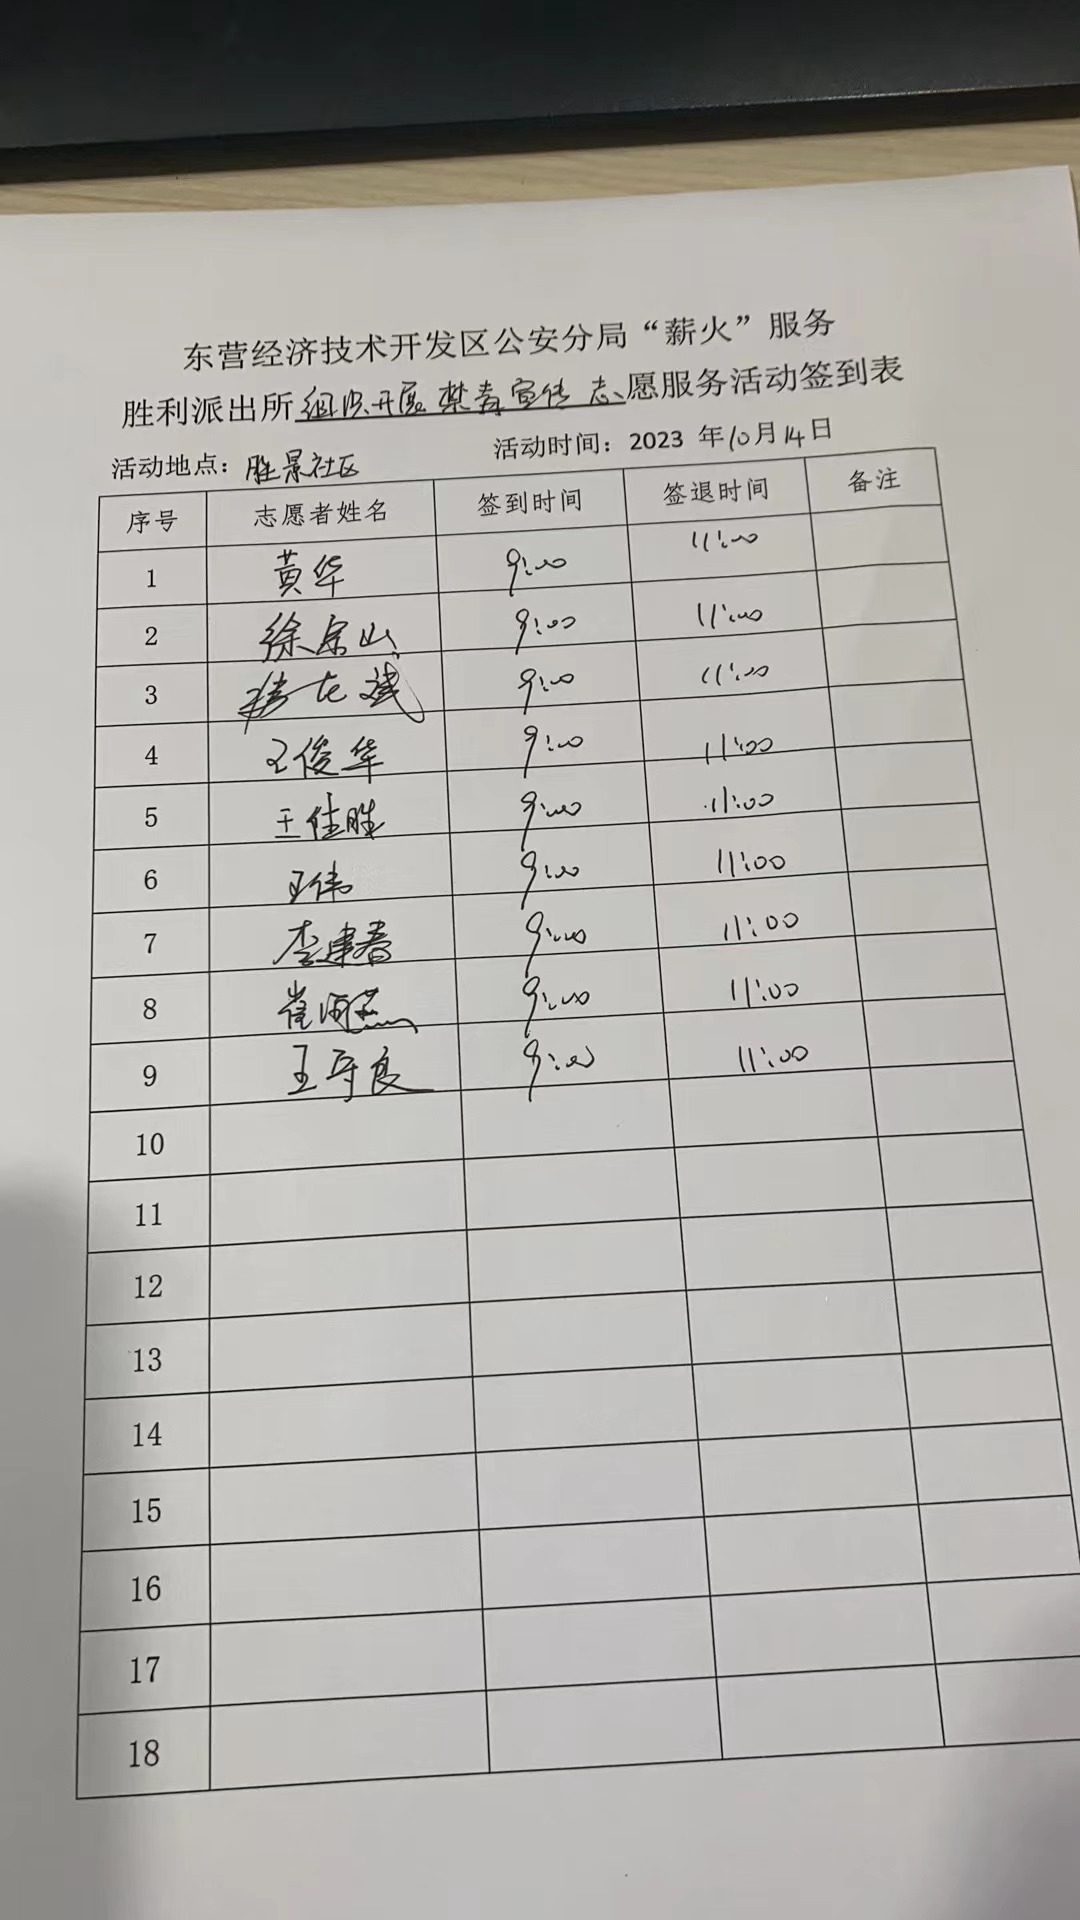 东营经济技术开发区公安分局“薪火”服务
胜利派出所组织开展禁毒宣传志愿服务活动签到表
活动地点：胜景社区 活动时间：2023 年10月14日
序号 志愿者姓名 签到时间 签退时间 备注
1 黄华 9:00 11:00
2 徐宗山 9:00 11:00
3 9:00 11:00
4 王俊华 9:00 11:00
5 王佳胜 9:00 11:00
6 王伟 9:00 11:00
7 李建春 9:00 11:00
8 崔 9:00 11:00
9 王守良 9:00 11:00
10
11
12
13
14
15
16
17
18